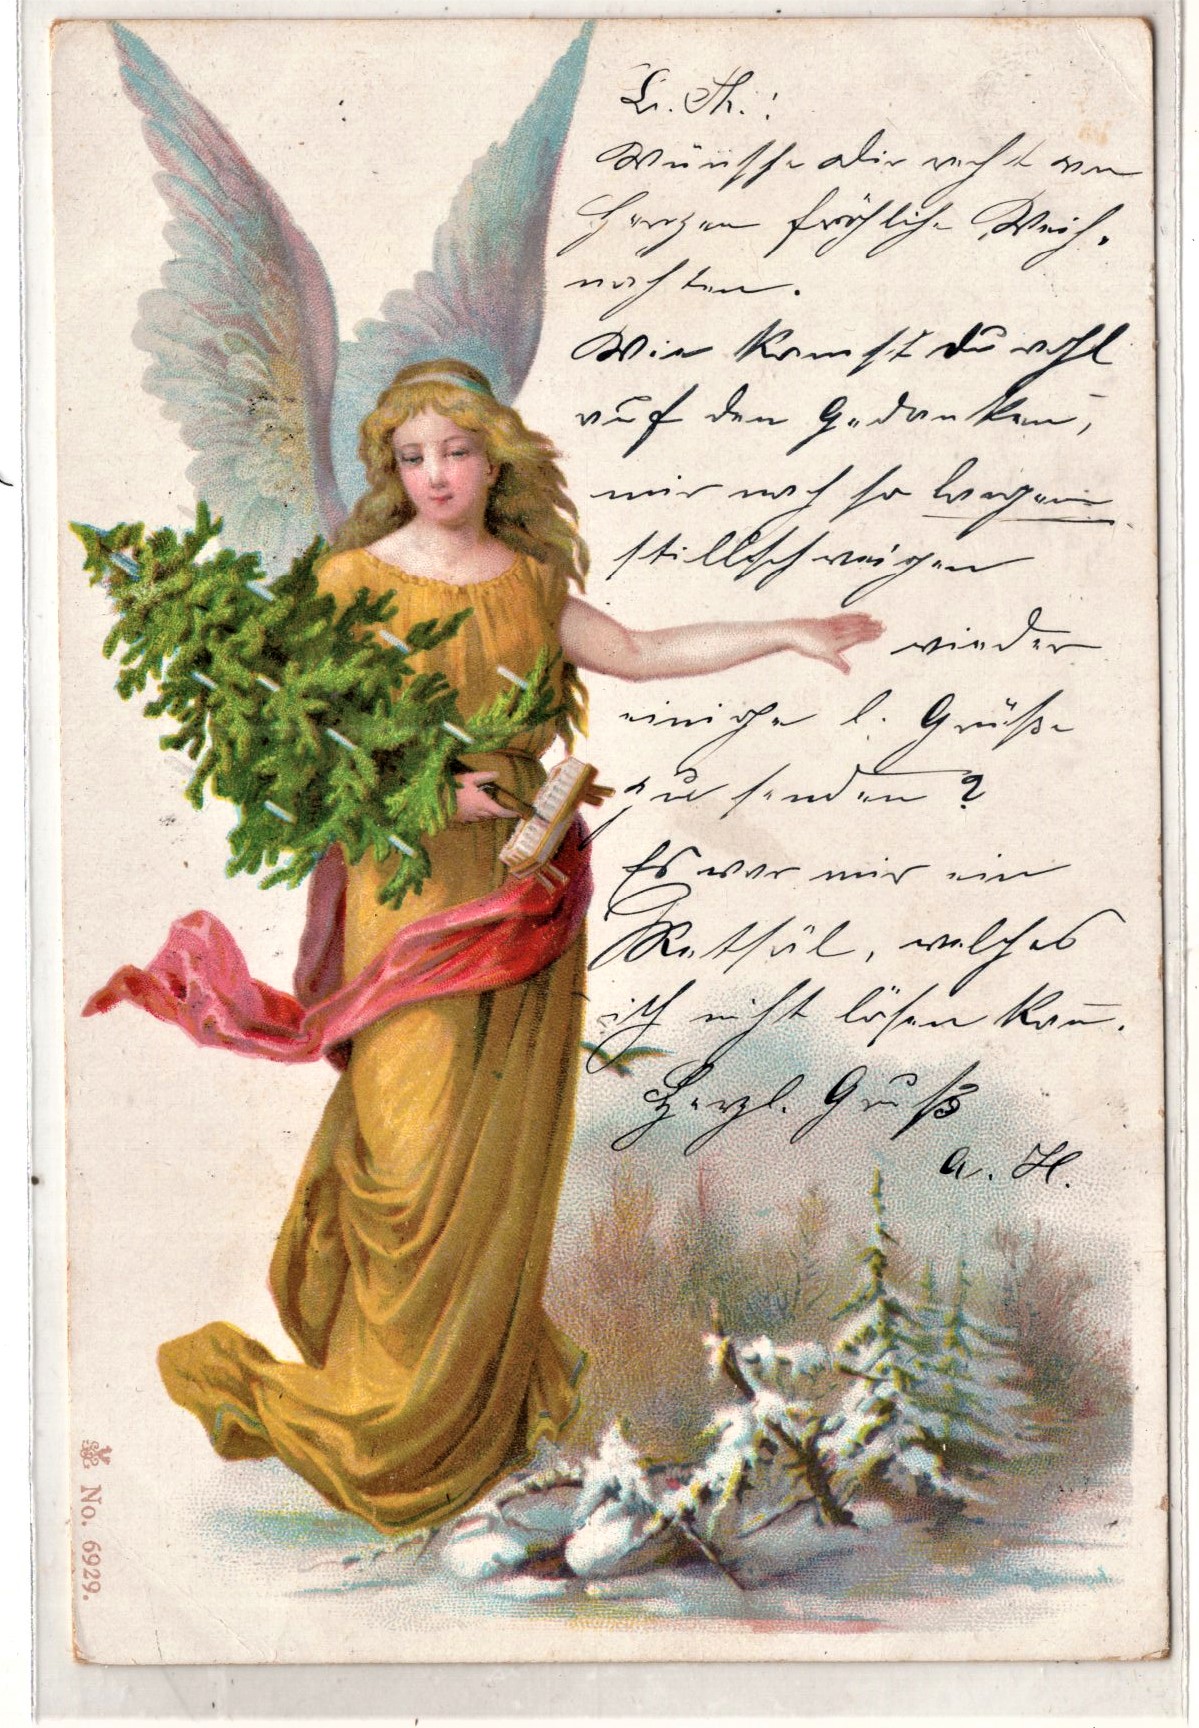 L. Th.:
Wünsche Dir recht von
Herzen fröhliche Weih-
nachten.
Wie kamst Du wohl
auf den Gedanken,
mir nach so langem
stillschweigen
wieder
einige l. Grüße
zu senden?
Es war mir ein
Rathsäl, welches
ich nicht lösen kan̄.
Herzl. Gruß
A. H.
No. 6929.